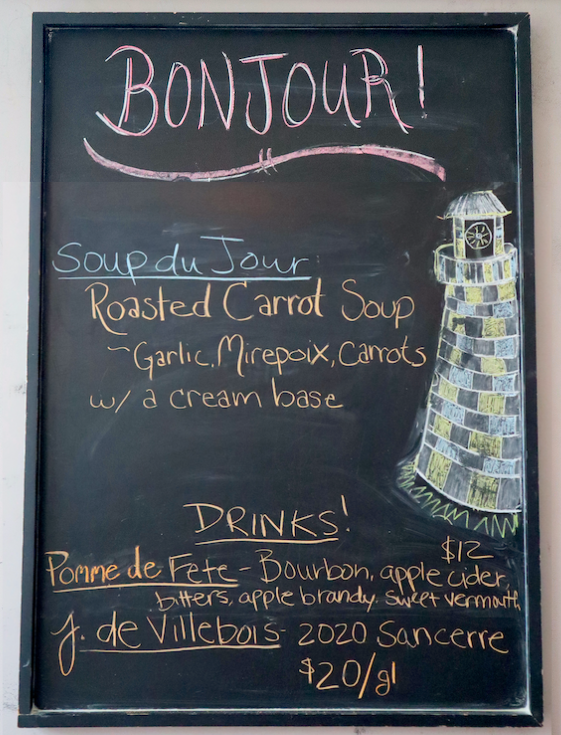 BONJOUR!
Soup du Jour
Roasted Carrot Soup
~Garlic, Mirepoix, Carrots
w/ a cream base
DRINKS!
$12
Pomme de Fete - Bourbon, apple cider,
bitters, apple brandy, sweet vermouth
J. de Villebois - 2020 Sancerre
$20/gl